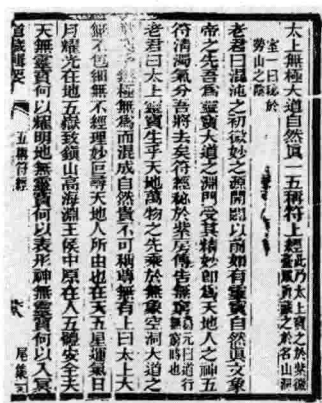 太上無極大道自然眞一五稱符上經
此乃太上寶之於紫微
於名山洞
室一曰祕於
勞山之陰
老君曰混沌之初微妙之源開闢以前如有靈寶自然眞文象
帝之先吾爲靈寶大道之淵門受其精妙卽爲天地人之神五
符清濁氣分吾將去矣符經祕於紫房傳告無窮
葛元曰道行
無窮時也
老君曰太上靈寶生乎天地萬物之先乘於無象空洞大道之
極無爲而混成自然貴不可稱尊無有上曰太上大
無不包細無不經理妙叵尋天地人所由也在天五星運氣日
月耀光在地五嶽致鎮山高海淵王侯中原在人五體安全夫
天無靈寶何以耀明地無靈寶何以表形神無靈寶何以入冥
道藏輯要
五稱符經
尾集